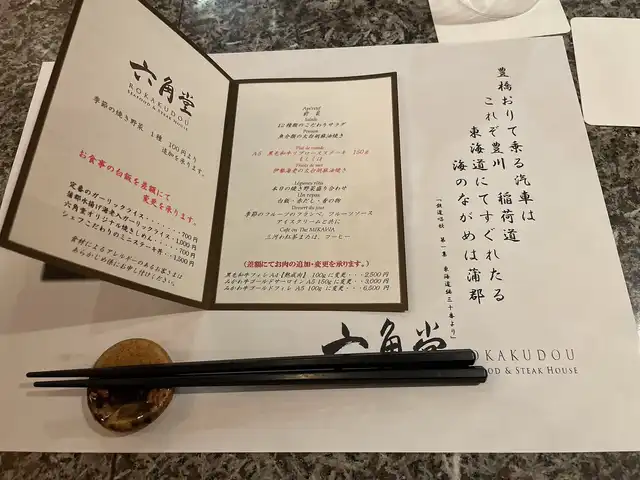 六角堂
ROKAKUDOU
SEAFOOD & STEAK HOUSE
季節の焼き野菜 1種 100円より
追加を承ります。
お食事の白飯を差額にて
変更を承ります。
定番のガーリックライス・・・・・・700円
蒲郡水揚げ海老入ガーリックライス・1,000円
六角堂オリジナル焼きしめん・・・・700円
シェフこだわりのミニステーキ丼・・1,500円
素材によるアレルギーのあるお客さまは
あらかじめ係にお申し付けください。
Apéritif
前菜
Salade
12種類のこだわりサラダ
Poisson
魚介類の太白胡麻油焼き
Plat de viande
A5 黒毛和牛リブロースステーキ 150g
もしくは
伊勢海老の太白胡麻油焼き
Légumes rôtis
本日の焼き野菜盛り合わせ
Un repas
白飯・赤だし・香の物
Dessert du jour
季節のフルーツのフランベ、フルーツソース
アイスクリームと共に
Café ou Thé MIKAWA
三河和紅茶または、コーヒー
(差額にてお肉の追加・変更を承ります。)
黒毛和牛フィレ A4【熟成肉】 100gに変更・・・2,500円
みかわ牛ゴールドサーロイン A5 150gに変更・・3,000円
みかわ牛ゴールドフィレ A5 100gに変更・・・6,500円
豊橋おりて乗る汽車は
これぞ豊川 稲荷道
東海道にてすぐれたる
海のながめは蒲郡
「鉄道唱歌 第一集 東海道編三十番より」
六角堂
ROKAKUDOU
SEAFOOD & STEAK HOUSE